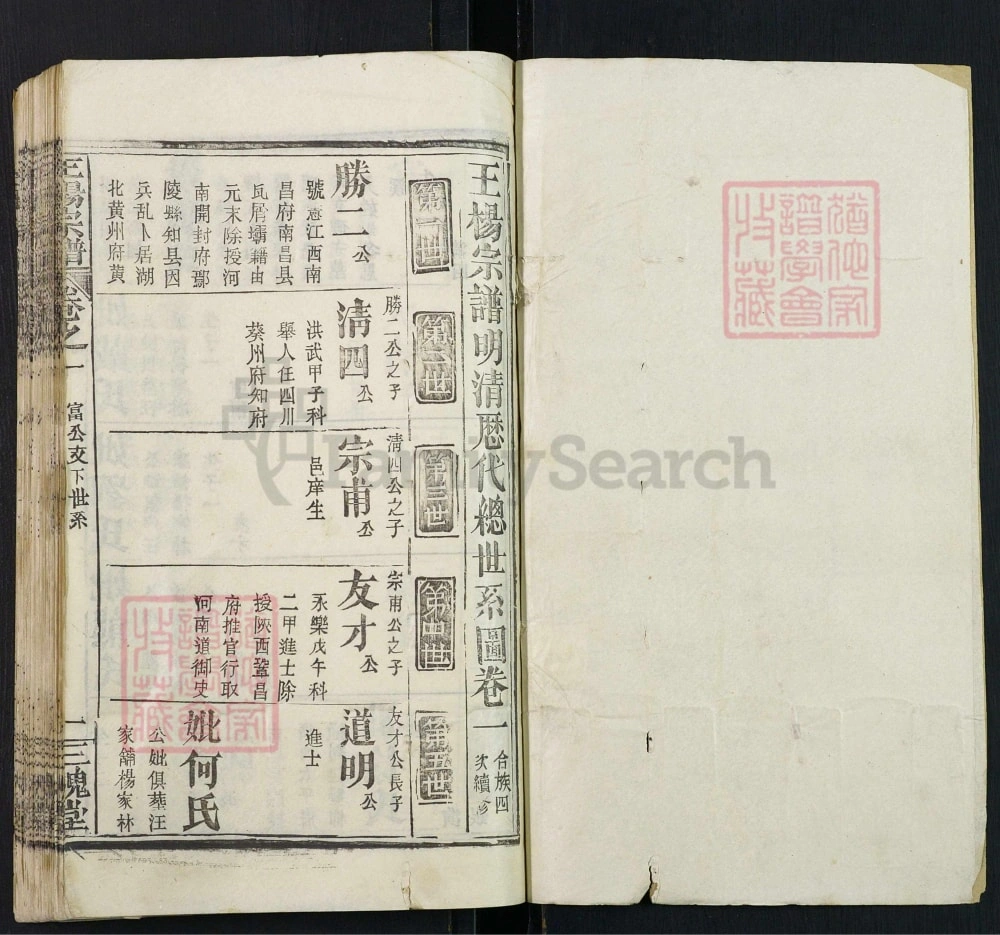 王楊宗譜明清歷代總世系圖卷一
合族四
次續修
第一世
勝二公
號 江西南
昌府南昌县
瓦屑壩籍由
元末除授河
南開封府鄢
陵縣知县因
兵乱卜居湖
北黄州府黄
第二世
勝二公之子
清四公
洪武甲子科
舉人任四川
葵州府知府
第三世
清四公之子
宗甫公
邑庠生
第四世
宗甫公之子
友才公
永樂戊午科
二甲進士除
授陝西鞏昌
府推官行取
河南道御史
第五世
友才公長子
道明公
進士
妣何氏
公妣俱葬汪
家舖楊家林
王楊宗譜
卷之一
富公支下世系
一
三槐堂
猶他家
譜學會
收藏
猶他家
譜學會
收藏
FamilySearch